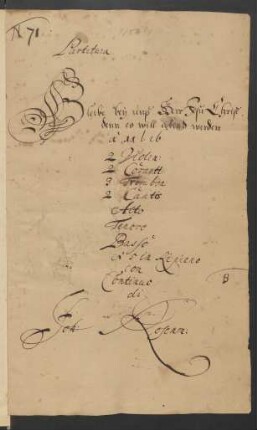 N 71
Partitura
Bleibe bey unß Herr Jesu Christ
denn es will abend werden
à 11
2 Violin
2 Cornett
3 Trombon
2 Canto
Alto
Tenore
Basso
con
Continuo
di
Joh Rosenm.